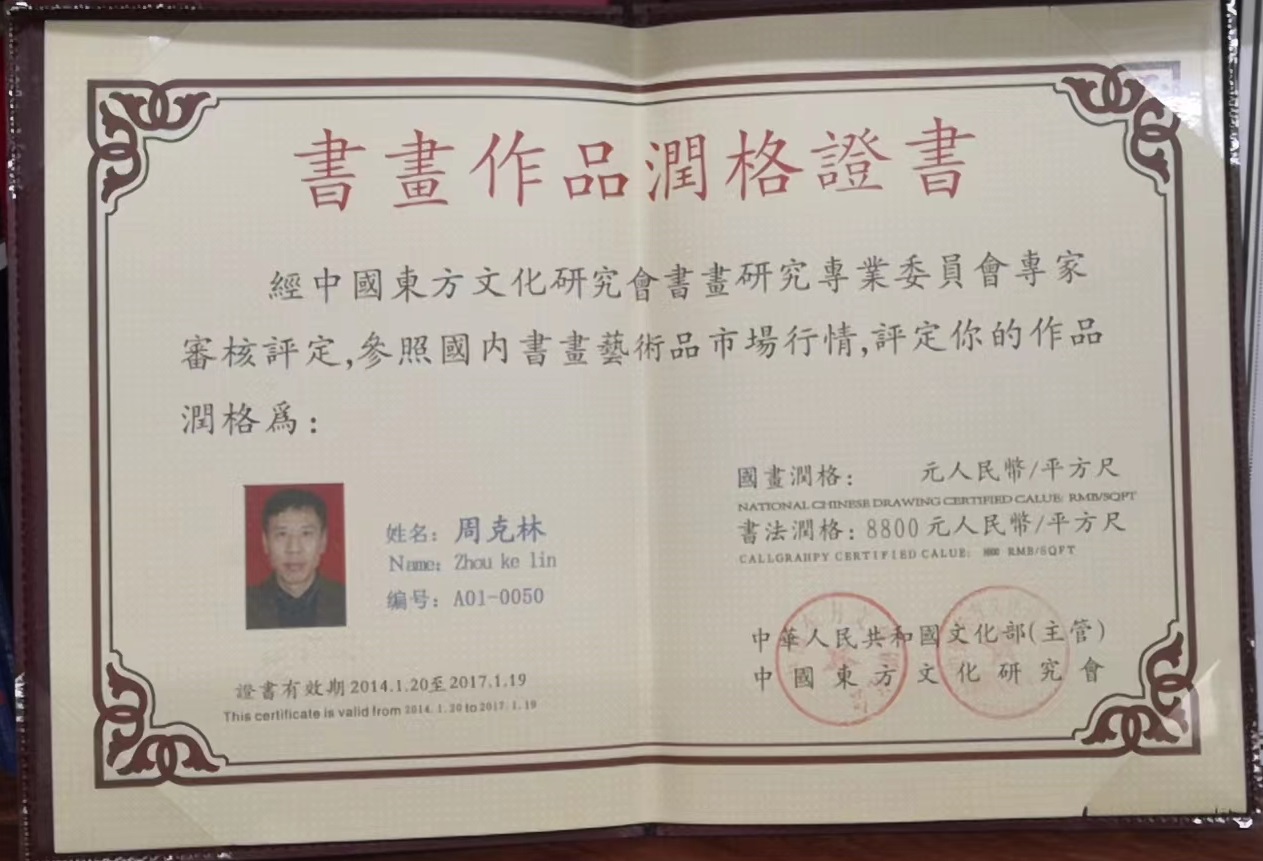 書畫作品潤格證書
經中國東方文化研究會書畫研究專業委員會專家
審核評定,參照國内書畫藝術品市場行情,評定你的作品
潤格爲:
國畫潤格: 元人民幣/平方尺
NATIONAL CHINESE DRAWING CERTIFIED CALUE: RMB/SQFT
書法潤格: 8800元人民幣/平方尺
CALLGRAHPY CERTIFIED CALUE: 8800 RMB/SQFT
姓名: 周克林
Name: Zhou ke lin
编号: A01-0050
中華人民共和國文化部(主管)
中國東方文化研究會
證書有效期2014.1.20至2017.1.19
This certificate is valid from 2014.1.20 to 2017.1.19